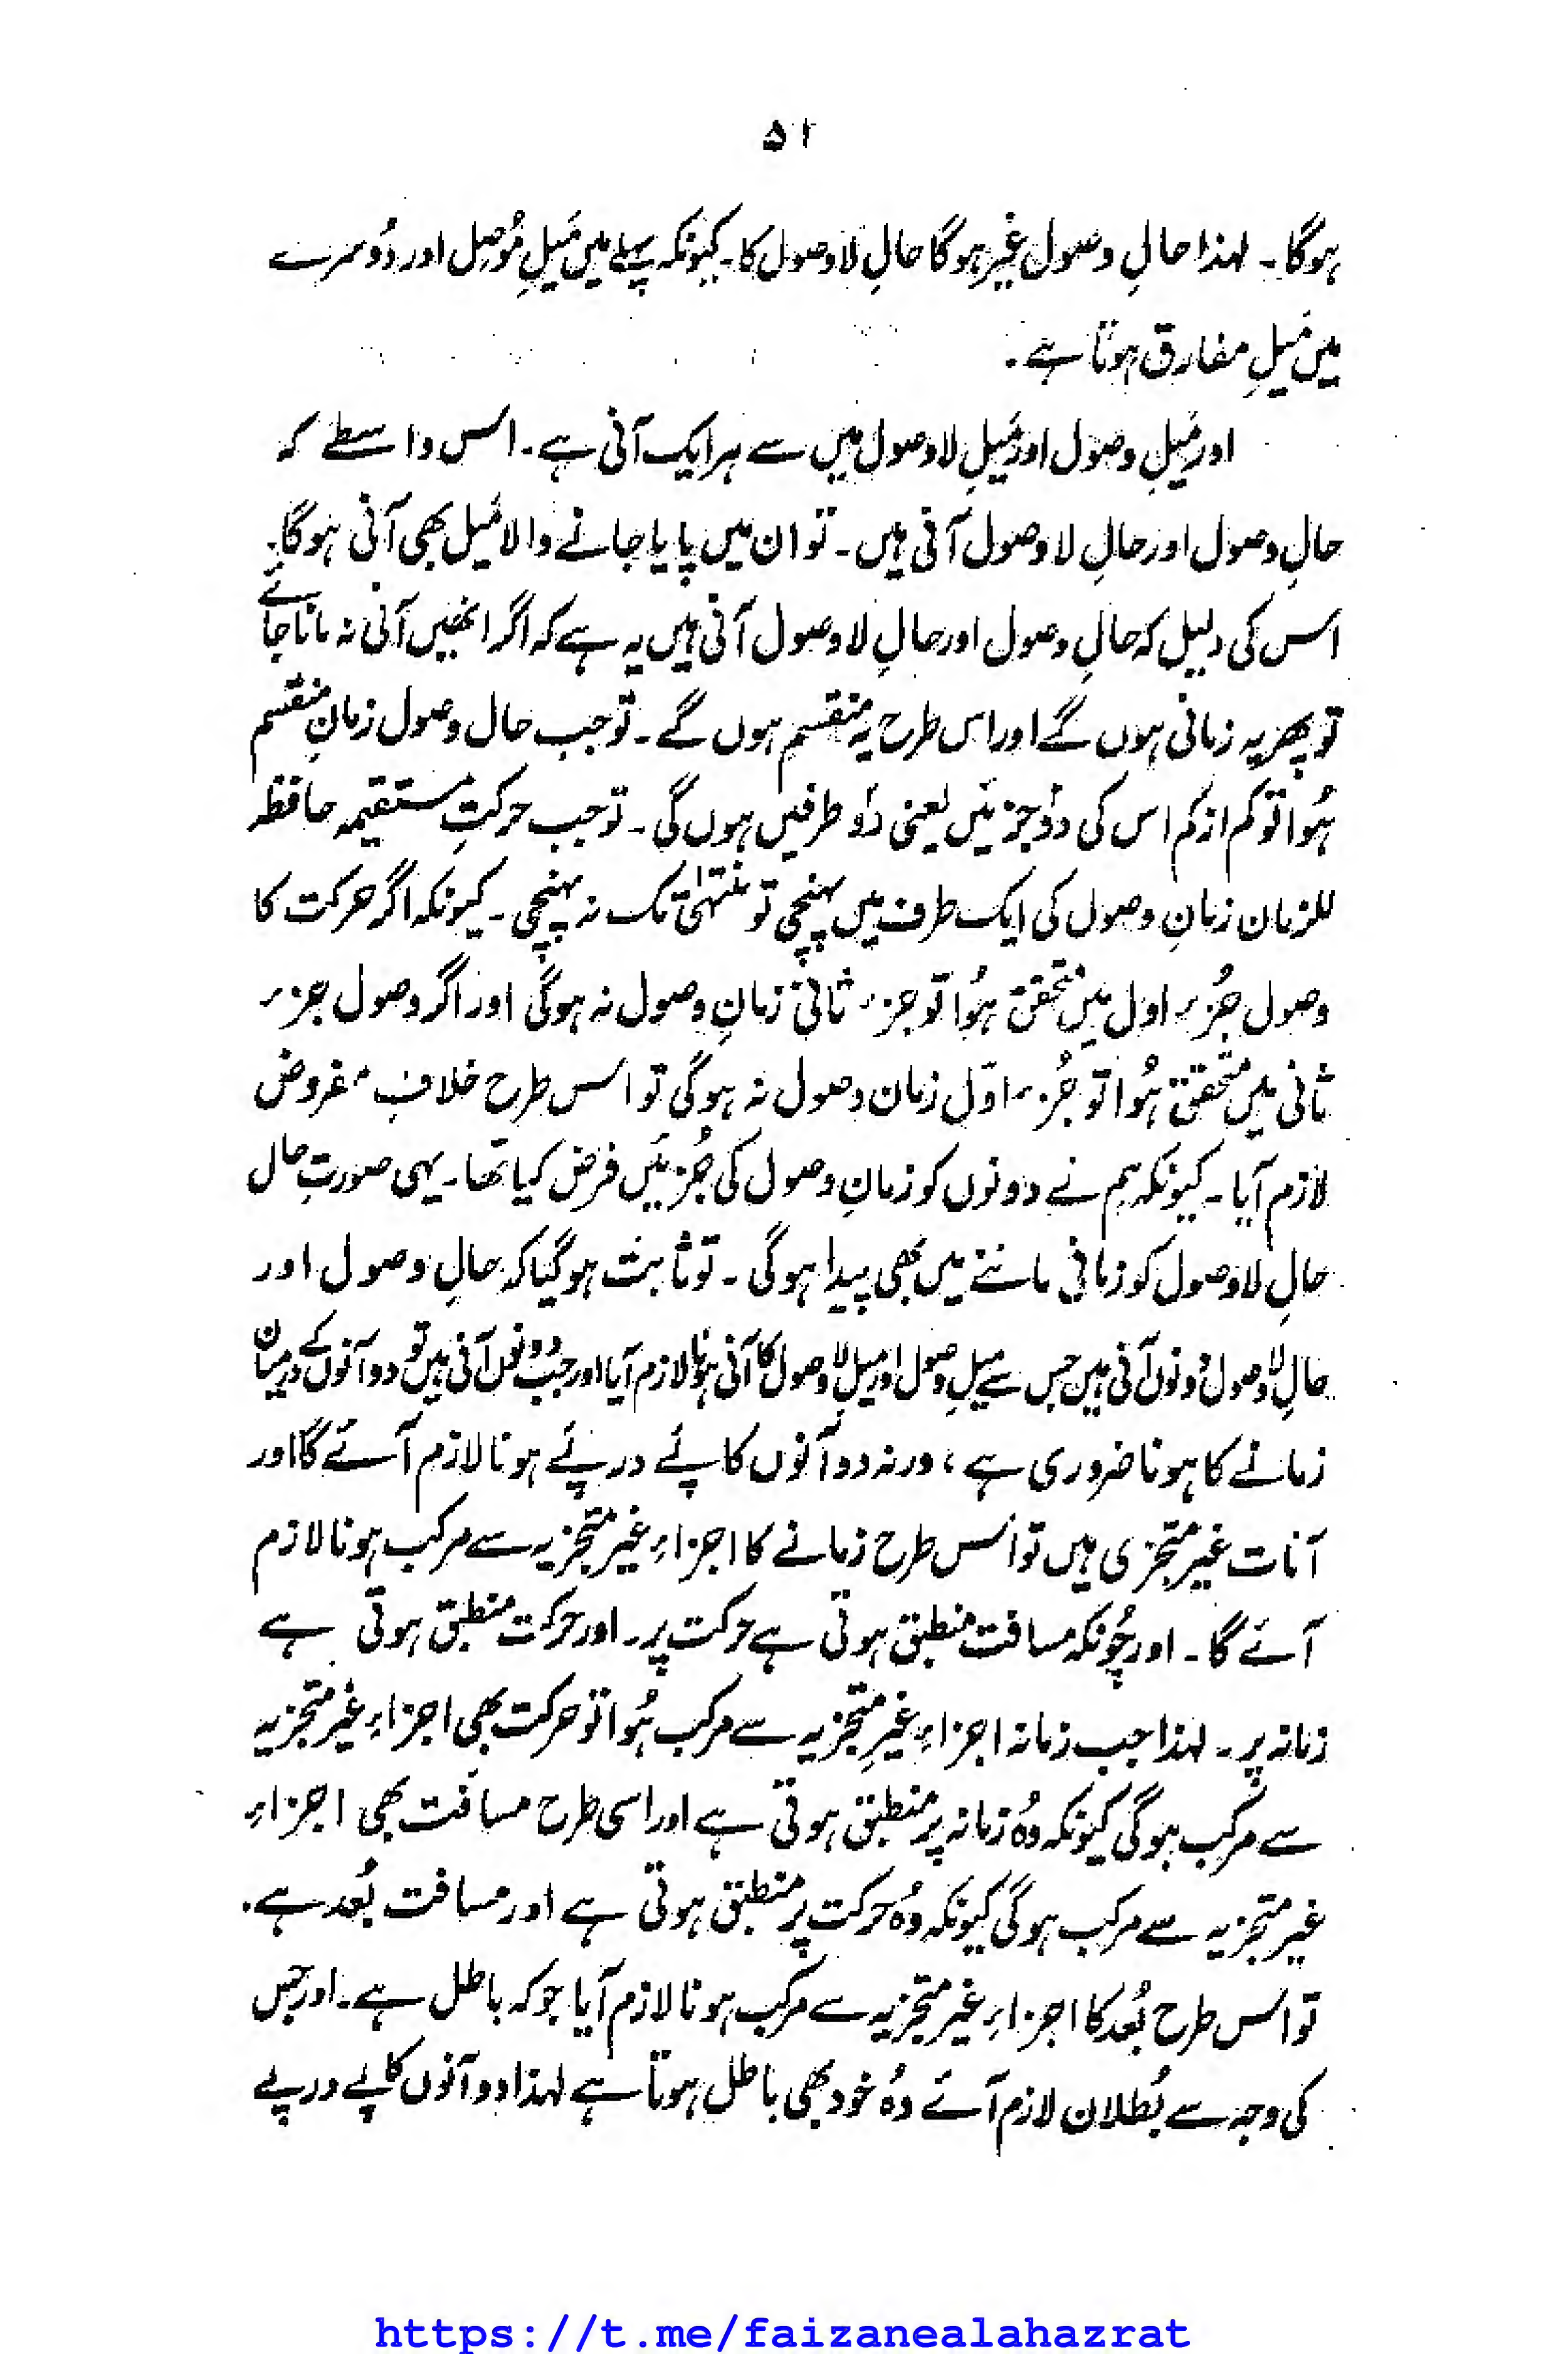 ۵۲
ہوگا۔ لہذا حالِ وصول غیر ہوگا حالِ لاوصول کا۔ کیونکہ پہلے میں مَیلِ مُوصِل اور دُوسرے
میں مَیلِ مفارق ہوتا ہے۔
اور مَیلِ وصول اور مَیلِ لاوصول میں سے ہر ایک آنی ہے۔ اس واسطے کہ
حالِ وصول اور حالِ لا وصول آنی ہیں۔ تو ان میں پایا جانے والا مَیل بھی آنی ہوگا۔
اس کی دلیل کہ حالِ وصول اور حالِ لا وصول آنی ہیں یہ ہے کہ اگر انھیں آنی نہ مانا جائے
تو پھر یہ زمانی ہوں گے اور اس طرح یہ منقسم ہوں گے۔ تو جب حال وصول زمانِ منقسم
ہُوا تو کم از کم اس کی دو جزئیں یعنی دو طرفیں ہوں گی۔ تو جب حرکتِ مستقیمہ حافظہ
للزمان زمانِ وصول کی ایک طرف میں پہنچی تو منتہیٰ تک نہ پہنچی۔ کیونکہ اگر حرکت کا
وصول جُزء اول میں متحقق ہُوا تو جزء ثانی زمانِ وصول نہ ہوگی اور اگر وصول جزء
ثانی میں متحقق ہُوا تو جُزء اوّل زمان وصول نہ ہوگی تو اس طرح خلافِ مفروض
لازم آیا۔ کیونکہ ہم نے دونوں کو زمانِ وصول کی جُزئیں فرض کیا تھا۔ یہی صورتِ حال
حالِ لاوصول کو زمانی ماننے میں بھی پیدا ہوگی۔ تو ثابت ہوگیا کہ حالِ وصول اور
حالِ لاوصول دونوں آنی ہیں جس سے میلِ وصول اور میلِ لاوصول کا آنی ہونا لازم آیا اور جب دونوں آنی ہیں تو دو آنوں کے درمیان
زمانے کا ہونا ضروری ہے، ورنہ دو آنوں کا پئے درپئے ہونا لازم آئے گا اور
آنات غیر متجزی ہیں تو اس طرح زمانے کا اجزاءِ غیر متجزیہ سے مرکب ہونا لازم
آئے گا۔ اور چُونکہ مسافت منطبق ہوتی ہے حرکت پر۔ اور حرکت منطبق ہوتی ہے
زمانہ پر۔ لہذا جب زمانہ اجزاءِ غیرِ متجزیہ سے مرکب ہُوا تو حرکت بھی اجزاءِ غیر متجزیہ
سے مرکب ہوگی کیونکہ وُہ زمانہ پر منطبق ہوتی ہے اور اسی طرح مسافت بھی اجزاءِ
غیر متجزیہ سے مرکب ہوگی کیونکہ وُہ حرکت پر منطبق ہوتی ہے اور مسافت بُعد ہے۔
تو اس طرح بُعد کا اجزاءِ غیر متجزیہ سے مرکب ہونا لازم آیا جو کہ باطل ہے۔ اور جس
کی وجہ سے بُطلان لازم آئے وُہ خود بھی باطل ہوتا ہے لہذا دو آنوں کا پے درپے
https://t.me/faizanealahazrat